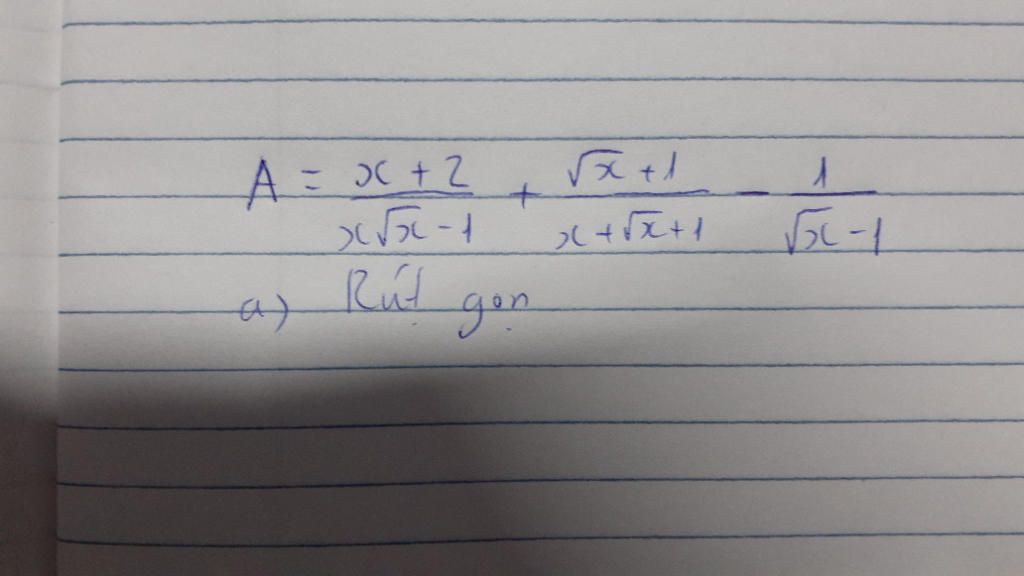 A = \frac{x+2}{x\sqrt{x}-1} + \frac{\sqrt{x}+1}{x+\sqrt{x}+1} - \frac{1}{\sqrt{x}-1}
a) Rút gọn